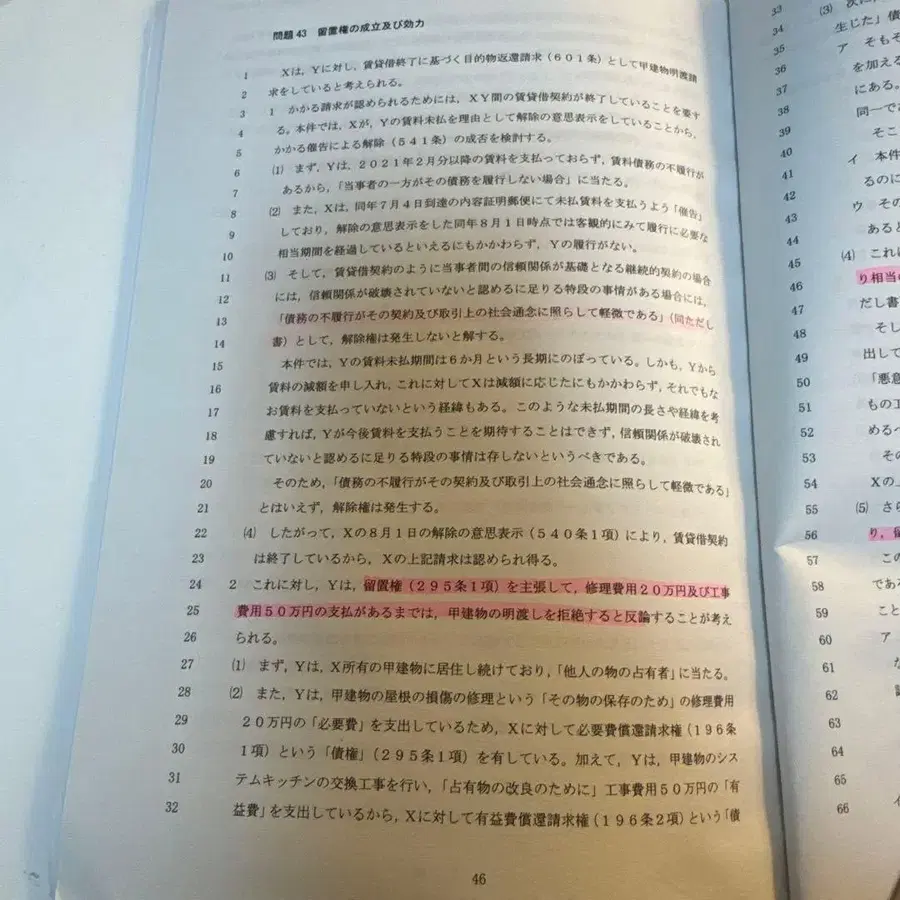 問題43 留置権の成立及び効力
1 Xは,Yに対し,賃貸借終了に基づく目的物返還請求(601条)として甲建物明渡請
2 求をしていると考えられる。
3 1 かかる請求が認められるためには,XY間の賃貸借契約が終了していることを要す
4 る。本件では,Xが,Yの賃料未払を理由として解除の意思表示をしていることから,
5 かかる催告による解除(541条)の成否を検討する。
6 ⑴ まず,Yは,2021年2月分以降の賃料を支払っておらず,賃料債務の不履行が
7 あるから,「当事者の一方がその債務を履行しない場合」に当たる。
8 ⑵ また,Xは,同年7月4日到達の内容証明郵便にて未払賃料を支払うよう「催告」
9 しており,解除の意思表示をした同年8月1日時点では客観的にみて履行に必要な
10 相当期間を経過しているといえるにもかかわらず,Yの履行がない。
11 ⑶ そして,賃貸借契約のように当事者間の信頼関係が基礎となる継続的契約の場合
12 には,信頼関係が破壊されていないと認めるに足りる特段の事情がある場合には,
13 「債務の不履行がその契約及び取引上の社会通念に照らして軽微である」(同ただし
14 書)として,解除権は発生しないと解する。
15 本件では,Yの賃料未払期間は6か月という長期にのぼっている。しかも,Yから
16 賃料の減額を申し入れ,これに対してXは減額に応じたにもかかわらず,それでもな
17 お賃料を支払っていないという経緯もある。このような未払期間の長さや経緯を考
18 慮すれば,Yが今後賃料を支払うことを期待することはできず,信頼関係が破壊され
19 ていないと認めるに足りる特段の事情は存しないというべきである。
20 そのため,「債務の不履行がその契約及び取引上の社会通念に照らして軽微である」
21 とはいえず,解除権は発生する。
22 ⑷ したがって,Xの8月1日の解除の意思表示(540条1項)により,賃貸借契約
23 は終了しているから,Xの上記請求は認められ得る。
24 2 これに対し,Yは,留置権(295条1項)を主張して,修理費用20万円及び工事
25 費用50万円の支払があるまでは,甲建物の明渡しを拒絶すると反論することが考え
26 られる。
27 ⑴ まず,Yは,X所有の甲建物に居住し続けており,「他人の物の占有者」に当たる。
28 ⑵ また,Yは,甲建物の屋根の損傷の修理という「その物の保存のため」の修理費用
29 20万円の「必要費」を支出しているため,Xに対して必要費償還請求権(196条
30 1項)という「債権」(295条1項)を有している。加えて,Yは,甲建物のシス
31 テムキッチンの交換工事を行い,「占有物の改良のために」工事費用50万円の「有
32 益費」を支出しているから,Xに対して有益費償還請求権(196条2項)という「債
46
33 ⑶ 次に
34 生じた」債
35 ア そもそ
36 を加える
37 にある。
38 同一であ
39 そこ
40 イ 本件
41 るのに
42 ウ その
43 あると
44 ⑷ これに
45 り相当の
46 だし書
47 そし
48 出して
49 「悪意
50 もの工
51 めるべ
52 その
53 Xの上
54 ⑸ さら
55 り,留
56 この
57 である
58 こと
59 ア
60 な
61
62
63
64
65
66